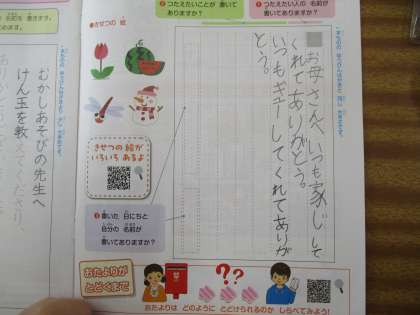 ❷つたえたいことが 書いてありますか？
❶つたえたい人の 名前がありますか？
●きせつの 絵
お母さんへ いつも家じして
くれてありがとう。
いつもギューしてくれてありが
とう。
きせつの 絵が
いろいろ あるよ
❸書いた 日にちと
自分の 名前が
書いてありますか？
むかしあそびの先生へ
けん玉を教えてくださり、
おたよりが
とどくまで
おたよりは どのように とどけられるのか しらべてみよう！